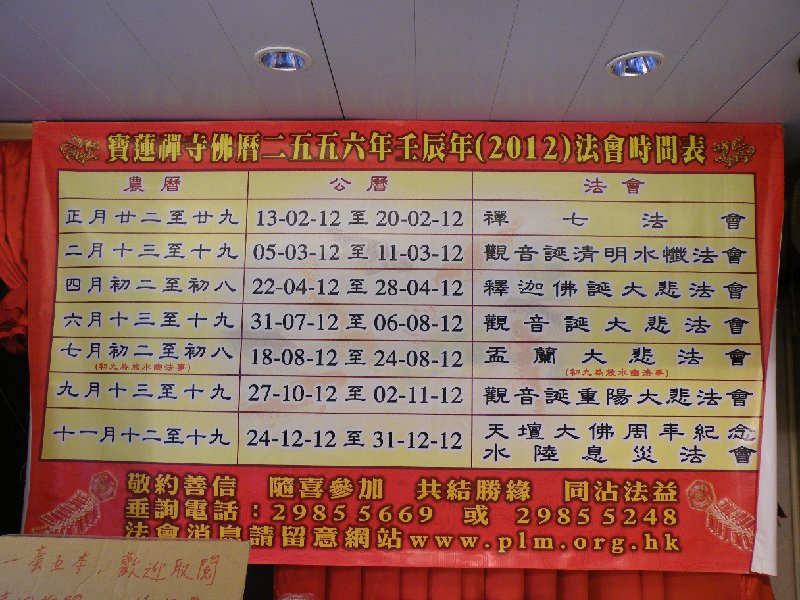 寶蓮禪寺佛曆二五五六年壬辰年(2012)法會時間表
農曆 公曆 法會
正月廿二至廿九 13-02-12 至 20-02-12 禪七法會
二月十三至十九 05-03-12 至 11-03-12 觀音誕清明水懺法會
四月初二至初八 22-04-12 至 28-04-12 釋迦佛誕大悲法會
六月十三至十九 31-07-12 至 06-08-12 觀音誕大悲法會
七月初二至初八 18-08-12 至 24-08-12 盂蘭大悲法會
(初九為放水幽法事) (初九為放水幽法事)
九月十三至十九 27-10-12 至 02-11-12 觀音誕重陽大悲法會
十一月十二至十九 24-12-12 至 31-12-12 天壇大佛周年紀念
水陸息災法會
敬約善信 隨喜參加 共結勝緣 同沾法益
垂詢電話：29855669 或 29855248
法會消息請留意網站www.plm.org.hk
一套五本，歡迎取閱